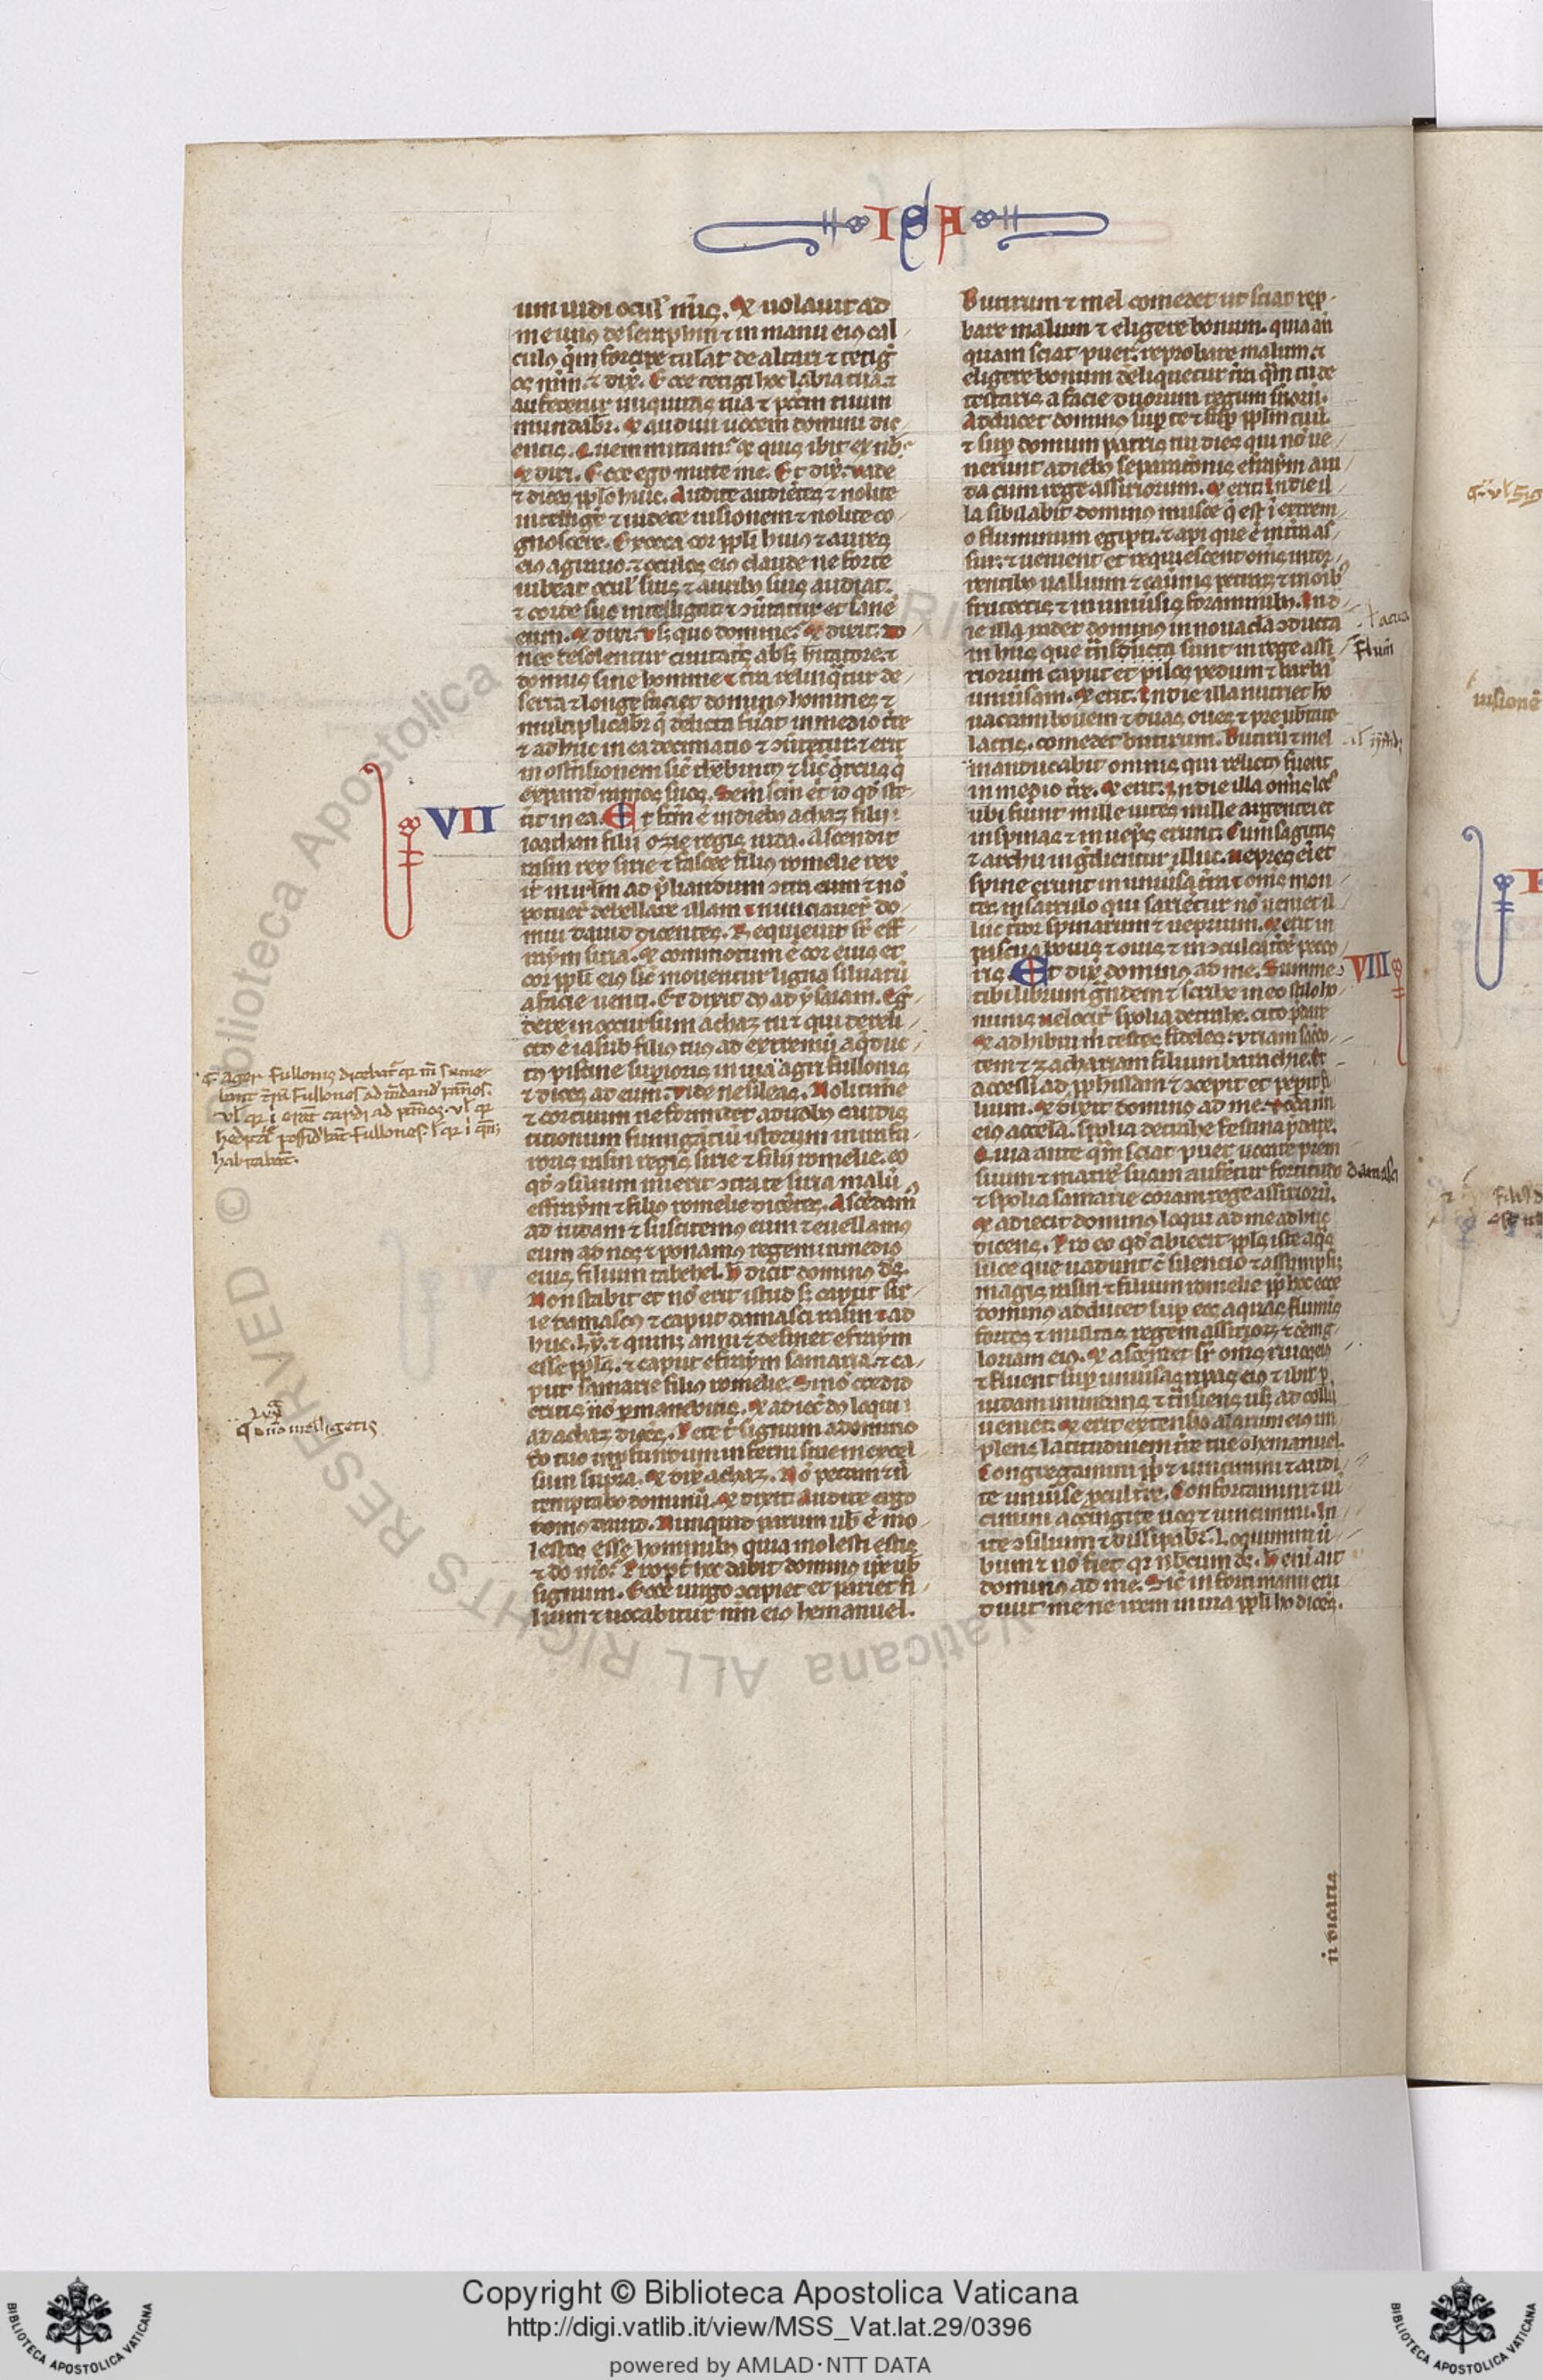 ISA
um uidi oculꝭ mĩs. Et uolauit ad
me unus de seraphin ⁊ in manu eius cal
culus q̃m forcipe tulat̾ de altari ⁊ tetig̾
os mm̃. ⁊ dix̾. Ecce tetigi hoc labia tua. ⁊
auferetur iniquitas tua ⁊ pccm̃ tuum
mundabr̃. Et audiui uocem domini dic
entis. Quem mittam? et quis ibit ex nob̾?
Et dixi. Ecce ego mitte me. Et dix̾. uade
⁊ dices pplo huic. Audite audiẽtes ⁊ nolite
intellige̾ ⁊ uidete uisionem ⁊ nolite co
gnoscere. Exceca cor ppli huius ⁊ aures
eius aggraua. ⁊ oculos eius claude ne forte
uideat oculꝭ suis ⁊ auribꝰ suis audiat.
⁊ corde suo intelligat ⁊ ↄũtatur et sane
eum. Et dixi. Usꝗ quo domine? Et dixit. do
nec desolentur ciuitates absꝗ hitatore. ⁊
domus sine homine ⁊ tr̃a relinq̃tur de
serta ⁊ longe faciet dominus homines ⁊
multiplicabr̃ q̃ derelicta fũat in medio tr̃e
⁊ adhuc in ea decimatio ⁊ ↄũtetur. ⁊ erit
in ostẽsionem sic̃ therebintus ⁊ sic̃ q̃rcus q̃
expand̃ ramos suos. Semẽ scm̃ erit id qd̾ ste
tit in ea. Et fcm̃ ẽ in diebus achaz filii
VII
ioathan filii ozie regis iuda. Ascendit
rasin rex sirie ⁊ facee filius romelie rex
isr̃l in irl̃m ad p̃liandum ↄtra eam ⁊ nõ
potuer̃ debellare illam ⁊ nunciauer̃ do
mui dauid dicentes. Requieuit sr̃ eff
raym siria. Et commotum ẽ cor eius et
cor ppl̃i eius sic̃ mouentur ligna siluarũ
a facie uenti. Et dixit do ad ysaiam. Eg̃
dere in occursum achaz tu ⁊ qui dereli
ctus ẽ iasub filius tuus ad extremũ aq̃duc
tus piscine superioris in uia agri fullonis
⁊ dices ad eum. Vide ne sileas. Noli time̾
⁊ cor tuum ne formidet a duobꝰ caudis
titionum fumigãtiũ istorum in ira fu
roris rasin regis sirie ⁊ filii romelie. eo
qd̾ ↄsilium inierit ↄtra te siria malũ
effraym ⁊ filius romelie dicẽtes. Ascẽdamꝰ
ad iudam ⁊ suscitemus eum ⁊ euellamus
eum ad nos ⁊ ponamus regem in medio
eius filium tabehel. h̾ dicit dominus ds̾.
Non stabit et nõ erit istud sꝫ caput sir
ie damascus ⁊ caput damasci rasin ⁊ ad
huc. lx̾. ⁊ quinꝗ anni ⁊ desinet efraym
esse ppl̃s. ⁊ caput efraym samaria. ⁊ ca
put samarie filius romelie. Si nõ credid
eritis nõ ꝑmanebitis. Et adiec̃ dñs loqui
ad achaz dicẽs. Pete t̾ signum a domino
do tuo in pfundum inferni siue in excel
sum supra. Et dix̾ achaz. Nõ petam ⁊ ñ
temptabo dominũ. Et dixit. Audite ergo
domus dauid. Nunquid parum uob̾ ẽ mo
lestos esse hominibꝰ quia molesti estis
⁊ do mõ? Propt̾ hoc dabit dominus ipse uob̾
signum. Ecce uirgo ↄcipiet et pariet fi
lium ⁊ uocabitur nm̃ eius hemanuel.
Butirum ⁊ mel comedet ut sciat rep
bare malum ⁊ eligere bonum. quia an
quam sciat puer. reprobare malum. ⁊
eligere bonum derelinquetur tr̃a q̃m tu de
testaris a facie duorum regum suorũ.
Adducet dominus suꝑ te ⁊ suꝑ ppl̃m tuũ.
⁊ suꝑ domum patris tui dies qui nõ ue
nerunt a diebꝰ separationis efraym a iu
da cum rege assiriorum. Et erit. In die il
la sibilabit dominus musce q̃ est ĩ extrem
o fluminum egipti. ⁊ api que ẽ in tr̃a as
sur. ⁊ uenient et requiescent om̃s in tor
rentibꝰ uallium ⁊ cauernis petrarꝫ ⁊ in om̃ibꝰ
fructetis ⁊ in uniũsis foraminibꝰ. In d
ie illa radet dominus in nouacula ↄducta
in hiis que trãs flum̃ sunt in rege assi
riorum caput et pilos pedum ⁊ barbã
uniũsam. Et erit. In die illa nutriet ho
uaccam bouem ⁊ duas oues ⁊ pre ubertate
lactis. comedet butirum. Butirũ ⁊ mel
manducabit omnis qui relictus fuerit
in medio tr̃e. Et erit. In die illa om̃is locꝰ
ubi fũint mille uites mille argenteis et
in spinas ⁊ in uepres erunt. Cum sagittis
⁊ archu ingredientur illuc. uepres eĩ et
spine erunt in uniũsa tr̃a ⁊ om̃s mon
tes. in sarculo qui sarientur nõ ueniet il
luc terror spinarum ⁊ ueprium. Et erit in
pascua bouis ⁊ ouis ⁊ in ↄculcatione peco
ris. Et dix̾ dominus ad me. Summe
VIII
tibi librum g̃ndem ⁊ scribe in eo stilo ho
minis uelociter spolia detrahe. cito p̃dare
Et adhibui m̃ testes fideles. uriam sacerdo
tem ⁊ zachariam filium barachie. Et
accessi ad pph̃issam ⁊ ↄcepit et peperit fi
lium. Et dixit dominus ad me. Uoca nm̃
eius accelera. spolia detrahe festina p̃dare.
Quia ante q̃m sciat puer uocare patrem
suum ⁊ matrẽ suam auferetur fortitudo
damasci
⁊ spolia samarie coram rege assiriorũ.
Et adiecit dominus loqui ad me adhuc
dicens. Pro eo qd̾ abiecit ppl̃s iste aquas
siloe que uadunt c̃ silencio ⁊ assũpsit
magis rasin ⁊ filium romelie ppt̾ hoc ecce
dominus adducet suꝑ eos aquas fluminis
fortes ⁊ multas regem assiriorꝫ ⁊ oẽm g
loriam eius. Et ascendet sr̃ om̃s riuos eius
⁊ fluent suꝑ uniũsas ripas eius ⁊ ibit ꝑ
iudam inundans ⁊ trãsiens usꝗ ad collũ
ueniet. Et erit extensio alarum eius im
plens latitudinem tr̃e tue o hemanuel.
Congregamini ppl̃i ⁊ uincimini ⁊ audi
te uniũse procul tr̃e. Confortamini ⁊ ui
cimini accingite uos ⁊ uincimini. In
ite ↄsilium ⁊ dissipabr̃. Loquimini ũ
bum ⁊ nõ fiet qr nobiscum ds̾. h̾ enĩ ait
dominus ad me. Sic̃ in forti manu eru
diuit me ne irem in uia ppl̃i huius dicẽs.
ager fullonis dicebatr̃
fullones
habitabãt.
nõ intelligetis
flum̃
ñ dicaria
Copyright © Biblioteca Apostolica Vaticana
http://digi.vatlib.it/view/MSS_Vat.lat.29/0396
powered by AMLAD·NTT DATA
BIBLIOTECA APOSTOLICA VATICANA
BIBLIOTECA APOSTOLICA VATICANA
© Biblioteca Apostolica Vaticana ALL RIGHTS RESERVED